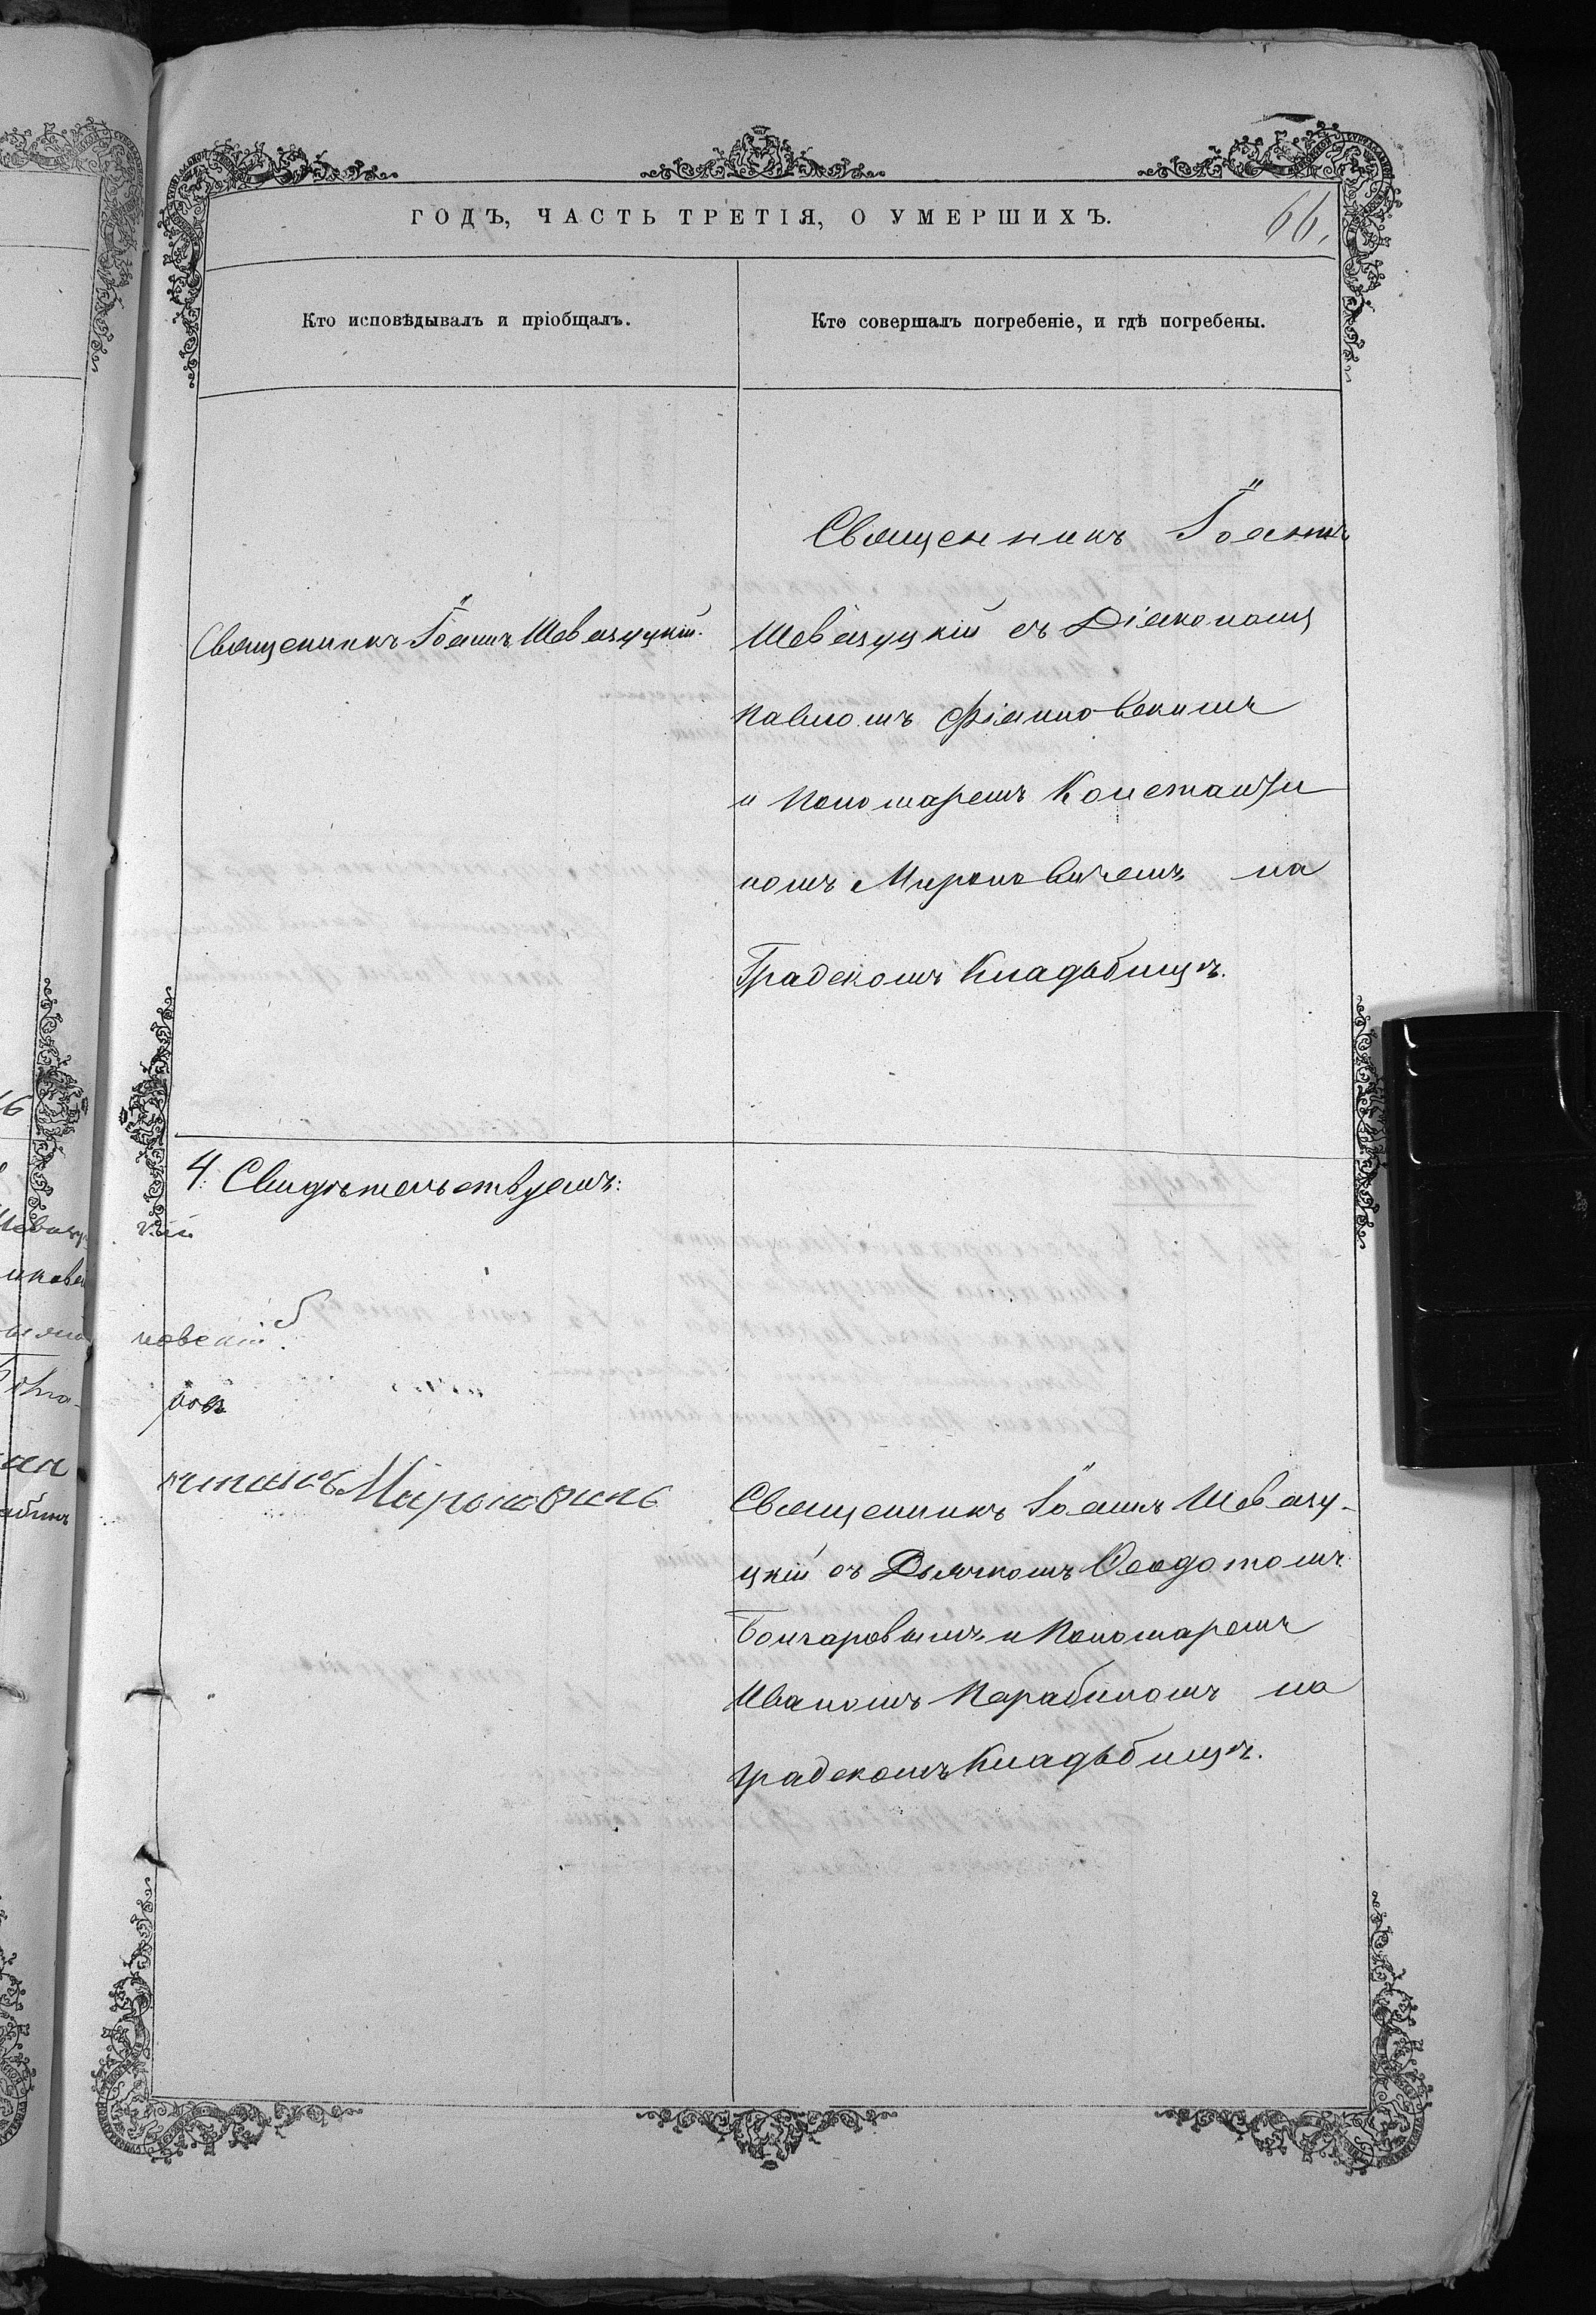 ГОДЪ, ЧАСТЬ ТРЕТІЯ, О УМЕРШИХЪ.
66.
Кто исповѣдывалъ и пріобщалъ.
Кто совершалъ погребеніе, и гдѣ погребены.
Священникъ Іоаннъ Шевазуцкій.
Священникъ Іоаннъ
Шевазуцкій съ Діакономъ
Павломъ Филиповскимъ
и Пономаремъ Константи
номъ Мироновичемъ на
Градскомъ Кладьбищѣ.
4. Свидѣтельствуемъ:
новскій
Мироновичъ
Священникъ Іоаннъ Шевазу-
цкій съ Дьячкомъ Ѳеодотомъ
Гончаровымъ и Пономаремъ
Иваномъ Карабиномъ на
градскомъ Кладьбищѣ.